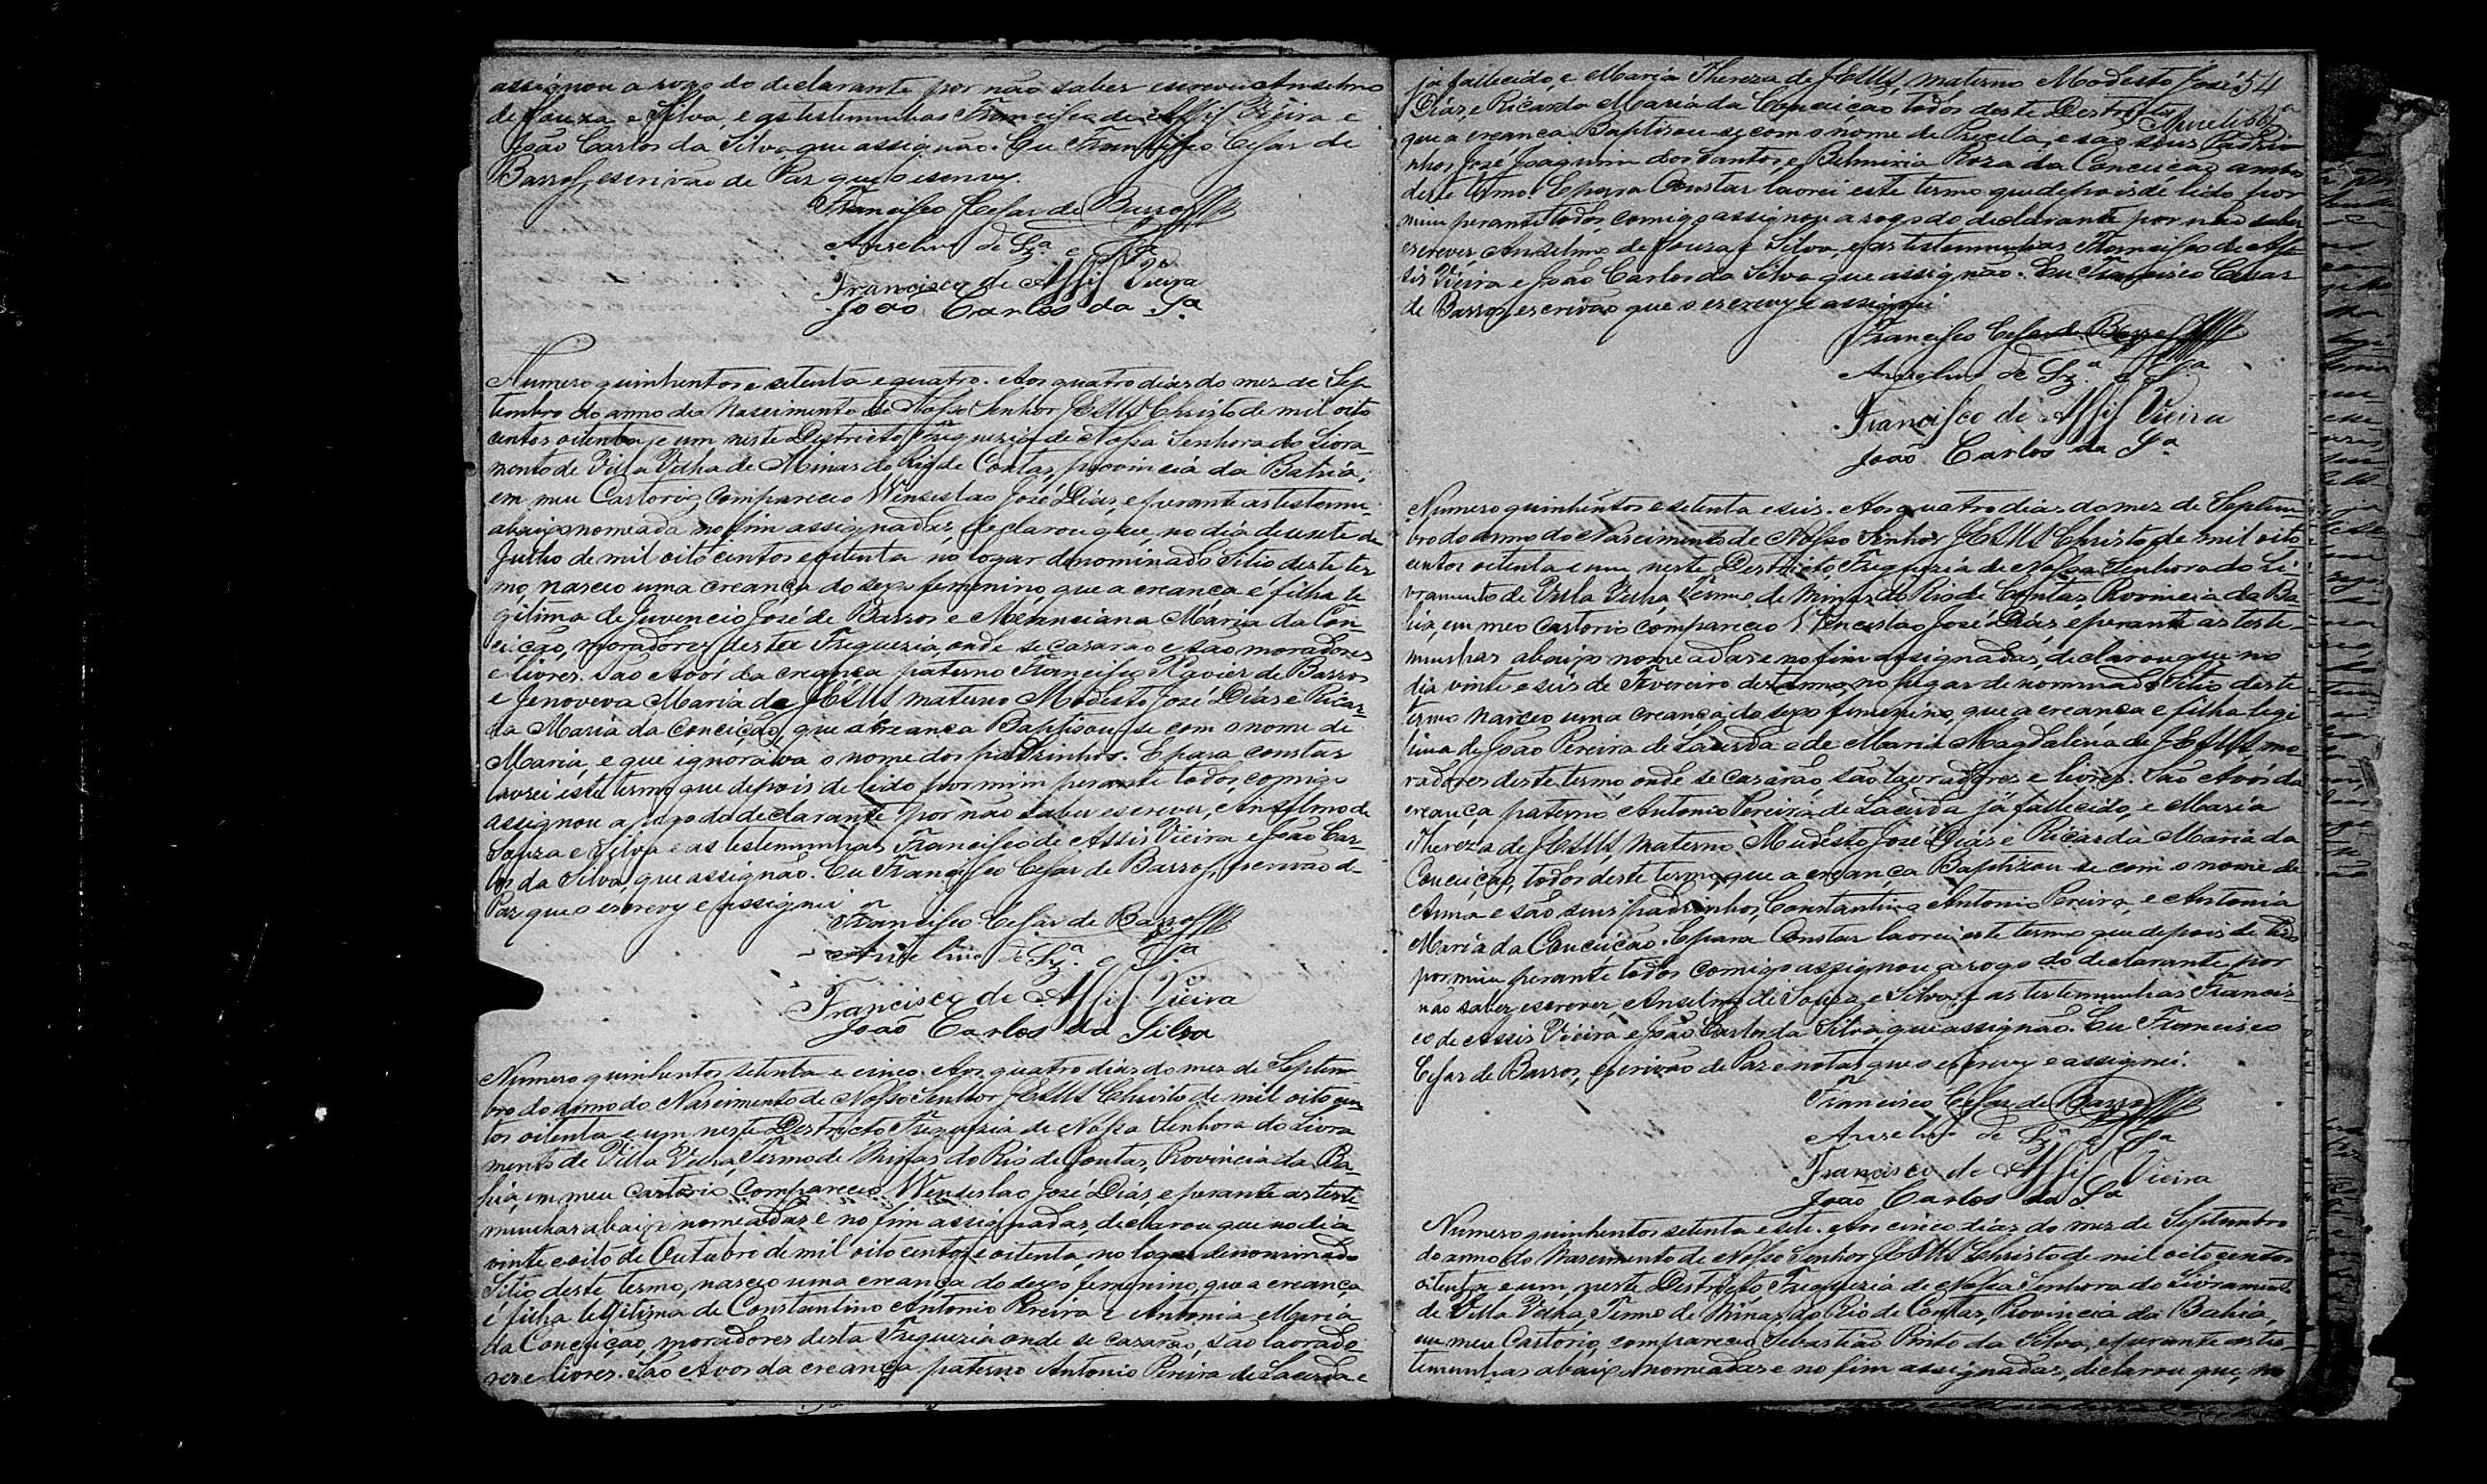 assignou a rogo do declarante por não saber escrever Anselmo
de Souza e Silva, e as testemunhas Francisco de Assis Vieira e
João Carlos da Silva, que assignão. Eu Francisco Cesar de
Barros, escrivão de Paz que o escrevy.
Francisco Cesar de Barros
Anselmo de Sz.ª e S.ª
Francisco de Assis Vieira
João Carlos da S.ª
Numero quinhentos e setenta e quatro. Aos quatro dias do mez de Sep
tembro do anno do Nascimento de Nosso Senhor JESUS Christo de mil oito
centos oitenta e um neste Districto, Freguezia de Nossa Senhora do Livra-
mento de Villa Velha de Minas do Rio de Contas, provincia da Bahia,
em meu Cartorio, compareceo Wenseslao José Dias, e perante as testemu-
abaixo nomeada no fim assignadas, declarou que no dia desesete de
Julho de mil oito centos e oitenta no logar denominado Sitio deste ter
mo, nasceo uma creança do sexo femenino, que a creança é filha le
gitima de Juvencio José de Barros e Merenciana Maria da Con-
ceição, moradores desta Freguezia, onde se casarão e são moradores
e livres. São Avós da creança paterno Francisco Xavier de Barros
e Jenoveva Maria de JESUS, materno Modesto José Dias e Ricar-
da Maria da Conceição, que a creança Baptisou-se com o nome de
Maria, e que ignorava o nome dos padrinhos. E para constar
lavrei este termo que depois de lido por mim perante todos, comigo
assignou a rogo do declarante por não saber escrever, Anselmo de
Souza e Silva e as testemunhas Francisco de Assis Vieira e João Car-
los da Silva, que assignão. Eu Francisco Cesar de Barros, escrivão de
Paz que o escrevy e assignei
Francisco Cesar de Barros
Anselmo de Sz.ª e S.ª
Francisco de Assis Vieira
João Carlos da Silva
Numero quinhentos setenta e cinco. Aos quatro dias do mez de Septem-
bro do anno do Nascimento de Nosso Senhor JESUS Christo de mil oito cen
tos oitenta e um neste Districto Freguezia de Nossa Senhora do Livra
mento de Villa Velha, Termo de Minas do Rio de Contas, Provincia da Ba-
hia, em meu cartorio compareceo Wenseslao José Dias, e perante as teste-
munhas abaixo nomeadas e no fim assignadas, declarou que no dia
vinte e oito de Outubro de mil oito centos e oitenta, no logar denominado
Sitio deste termo, nasceo uma creança do sexo femenino, que a creança
é filha legitima de Constantino Antonio Pereira e Antonia Maria
da Conceição, moradores desta Freguezia onde se casarão, são lavrado
res e livres. São Avós da creança paterno Antonio Pereira de Lacerda e
já fallecido, e Maria Thereza de JESUS, materno Modesto José 54
Dias, e Ricarda Maria da Conceição todos deste Destricto,
que a creança Baptisou-se com o nome de, e são seus Padri-
nhos José Joaquim dos Santos, e Belmiria Roza da Conceição ambos
deste termo. E para Constar lavrei este termo que depois de lido por
mim perante todos, comigo assignou a rogo do declarante por não saber
escrever, Anselmo de Souza e Silva, e as testemunhas Francisco de As
sis Vieira e João Carlos da Silva que assignão. Eu Francisco Cesar
de Barros, escrivão que o escrevy e assignei
Francisco Cesar de Barros
Anselmo de Sz.ª e S.ª
Francisco de Assis Vieira
João Carlos da S.ª
Numero quinhentos e setenta e seis. Aos quatro dias do mez de Septem
bro do anno do Nascimento de Nosso Senhor JESUS Christo de mil oito
centos oitenta e um neste Destricto, Freguezia de Nossa Senhora do Li
vramento de Villa Velha, Termo de Minas do Rio de Contas, Provincia da Ba-
hia, em meo Cartorio compareceo Wenceslao José Dias, e perante as teste-
munhas abaixo nomeadas e no fim assignadas, declarou que no
dia vinte e seis de Fevereiro deste anno, no lugar denominado Sitio deste
termo nasceo uma creança, do sexo femenino, que a creança é filha legi
tima de João Pereira de Lacerda e de Maria Magdalena de JESUS, mo
radores deste termo onde se casarão, são lavradores e livres. São Avós da
creança paterno Antonio Pereira de Lacerda já fallecido, e Maria
Thereza de JESUS, materno Modesto José Dias e Ricarda Maria da
Conceição, todos deste termo, que a creança Baptizou-se com o nome de
Anna e são seus padrinhos, Constantino Antonio Pereira, e Antonia
Maria da Conceição. E para Constar lavrei este termo que depois de lido
por mim perante todos comigo assignou a rogo do declarante por
não saber escrever Anselmo de Souza e Silva, e as testemunhas Francis-
co de Assis Vieira e João Carlos da Silva, que assignão. Eu Francisco
Cesar de Barros, escrivão de Paz e notas que o escrevy e assignei.
Francisco Cesar de Barros
Anselmo de Sz.ª e S.ª
Francisco de Assis Vieira
João Carlos da S.ª
Numero quinhentos setenta e sete. Aos cinco dias do mez de Septembro
do anno do Nascimento de Nosso Senhor JESUS Christo de mil oito centos
oitenta e um, neste Destricto Freguezia de Nossa Senhora do Livramento
de Villa Velha, Termo de Minas do Rio de Contas, Provincia da Bahia,
em meu Cartorio, compareceo Sebastião Pinto da Silva, e perante as tes-
temunhas abaixo nomeadas e no fim assignadas, declarou que, no